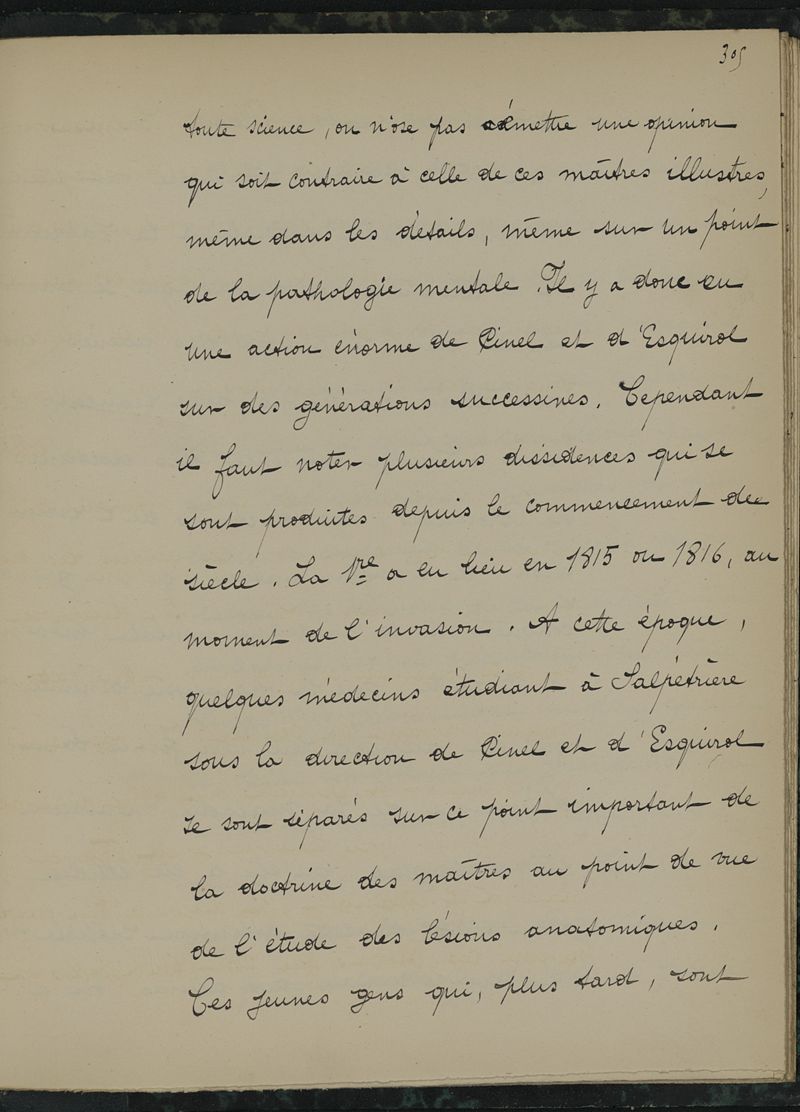 305
toute science, on n'ose pas émettre une opinion
qui soit contraire à celle de ces maîtres illustres,
même dans les détails, même sur un point
de la pathologie mentale. Il y a donc eu
une action énorme de Pinel et d'Esquirol
sur des générations successives. Cependant
il faut noter plusieurs dissidences qui se
sont produites depuis le commencement de
siècle. La 1re a eu lieu en 1815 ou 1816, au
moment de l'invasion. A cette époque,
quelques médecins étudiant à Salpétrière
sous la direction de Pinel et d'Esquirol
se sont séparés sur ce point important de
la doctrine des maîtres au point de vue
de l'étude des lésions anatomiques.
Ces jeunes gens qui, plus tard, sont